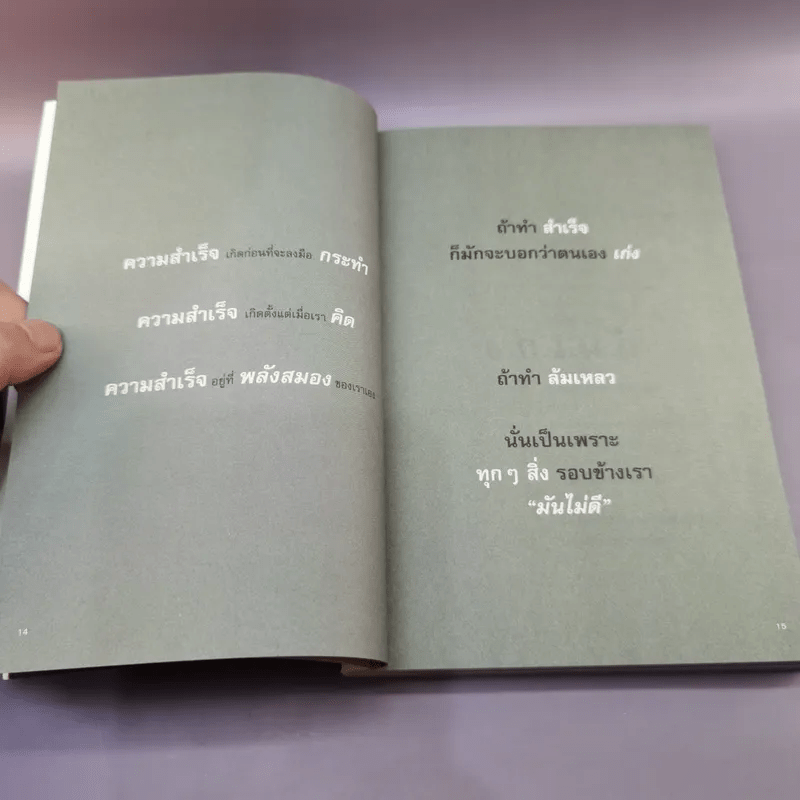 ความสำเร็จ เกิดก่อนที่จะลงมือ กระทำ
ความสำเร็จ เกิดตั้งแต่เมื่อเรา คิด
ความสำเร็จ อยู่ที่ พลังสมอง ของเราเอง
14
ถ้าทำ สำเร็จ
ก็มักจะบอกว่าตนเอง เก่ง
ถ้าทำ ล้มเหลว
นั่นเป็นเพราะ
ทุกๆ สิ่ง รอบข้างเรา
“มันไม่ดี”
15